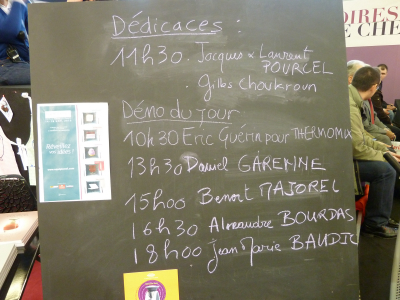 Dédicaces :
11h30 . Jacques & Laurent
POURCEL
. Gilles Choukroun
Démo du jour
10h30 Eric Guérin pour THERMOMIX
13h30 Daniel GARENNE
15h00 Benoit MAJOREL
16h30 Alexandre BOURDAS
18h00 Jean Marie BAUDIC
OIRES
E CHE